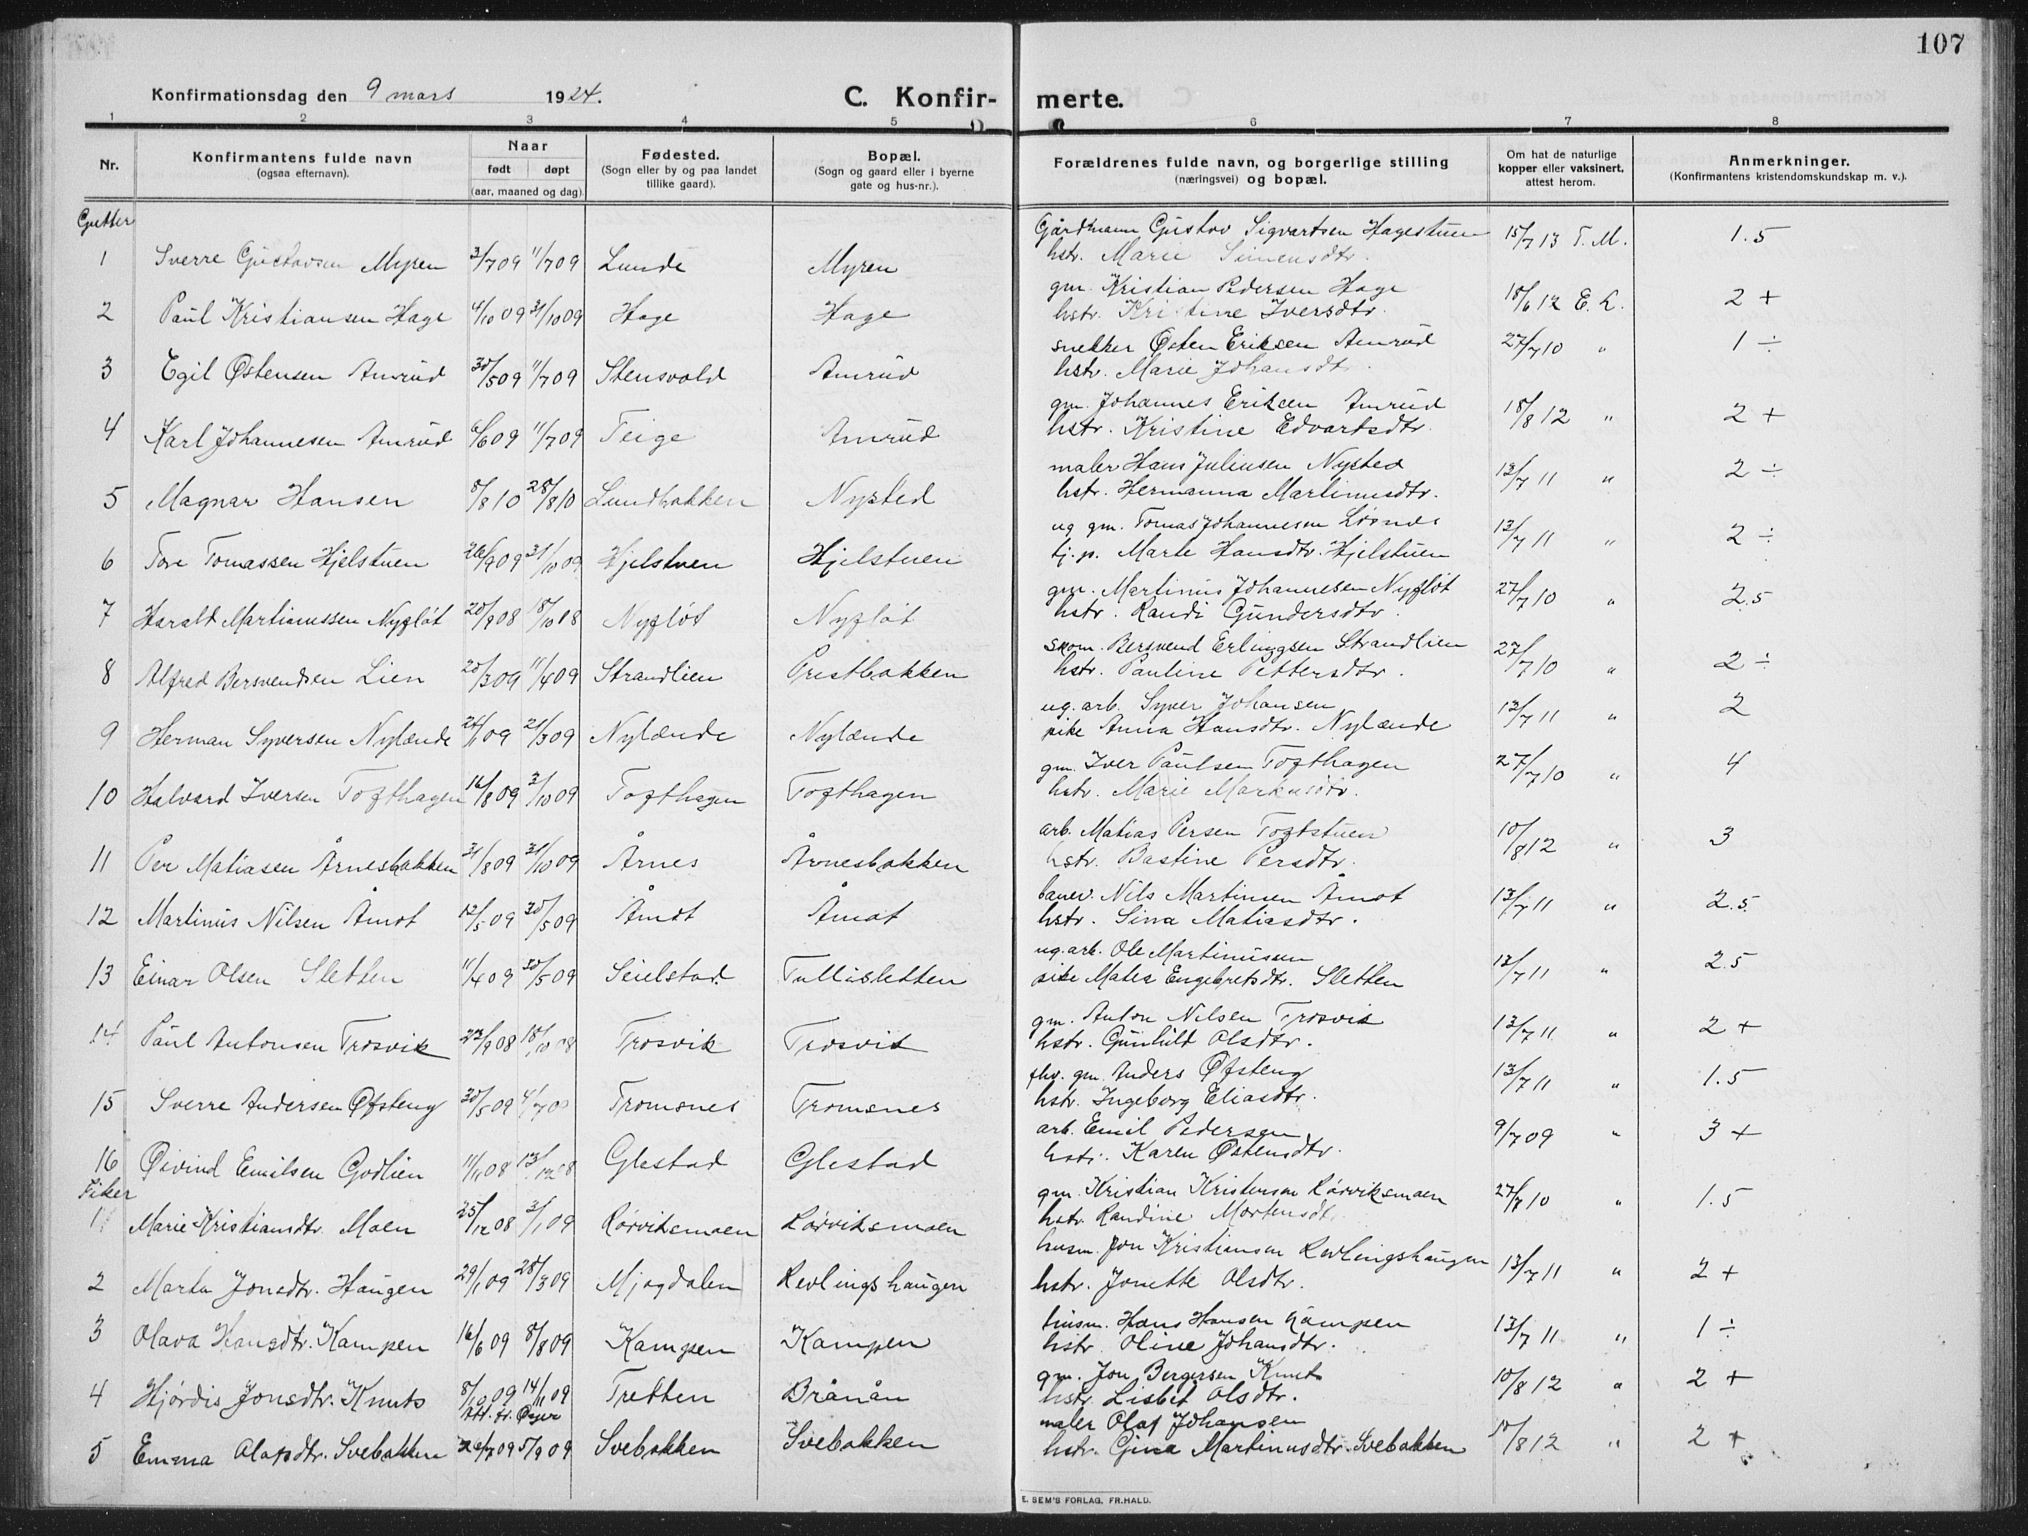 107
Konfirmationsdag den 9 mars 1924. C. Konfir- merte.
1 2 3 4 5 6 7 8
Nr. Konfirmantens fulde navn (ogsaa efternavn). Naar født døpt (aar, maaned og dag). Fødested. (Sogn eller by og paa landet tillike gaard). Bopæl. (Sogn og gaard eller i byerne gate og hus-nr.). Forældrenes fulde navn, og borgerlige stilling (næringsvei) og bopæl. Om hat de naturlige kopper eller vaksinert, attest herom. Anmerkninger. (Konfirmantens kristendomskundskap m. v.).
Gutter
Gårdmann Gustav Sigvartsen Hagestuen
1 Sverre Gustavsen Myren 3/7 09 11/7 09 Lunde Myren hstr. Marie Simensdtr. 15/7 13 T. M. 1.5
gm. Kristian Pedersen Hage
2 Paul Kristiansen Hage 4/10 09 31/10 09 Hage Hage hstr. Kristine Iversdtr. 18/6 12 E. L. 2 +
snekker Østen Eriksen Amrud
3 Egil Østensen Amrud 30/5 09 11/7 09 Stensvold Amrud hstr. Marie Johansdtr. 27/7 10 " 1 ÷
gm. Johannes Eriksen Amrud
4 Karl Johannesen Amrud 6/6 09 11/7 09 Teige Amrud hstr. Kristine Edvartsdtr. 18/8 12 " 2 +
maler Hans Juliussen Nysted
5 Magnar Hansen 8/8 10 28/8 10 Lundbakken Nysted hstr. Hermanna Martinusdtr. 13/7 11 " 2 ÷
ug gm. Tomas Johannesen Losnes
6 Tore Tomassen Hjelstuen 26/9 09 31/10 09 Hjelstuen Hjelstuen tj. p. Marte Hansdtr. Hjelstuen 13/7 11 " 2 ÷
gm. Martinus Johannesen Nyfløt
7 Harald Martinussen Nyfløt 20/9 08 18/10 08 Nyfløt Nyfløt hstr. Randi Gundersdtr. 27/7 10 " 2.5
skom. Bersvend Erlingsen Strandlien
8 Alfred Bersvendsen Lien 20/3 09 11/4 09 Strandlien Prestbakken hstr. Pauline Pettersdtr. 27/7 10 " 2 ÷
ug. arb. Syver Johansen
9 Herman Syversen Nylænde 24/1 09 21/3 09 Nylænde Nylænde pike Anna Hansdtr. Nylænde 13/7 11 " 2
gm. Iver Paulsen Tofthagen
10 Halvard Iversen Tofthagen 16/8 09 31/10 09 Tofthagen Tofthagen hstr. Marie Markusdtr. 27/7 10 " 4
arb. Matias Persen Toftstuen
11 Per Matiasen Årnesbakken 31/8 09 31/10 09 Årnes Årnesbakken hstr. Bastine Persdtr. 10/8 12 " 3
banev. Nils Martinsen Åmot
12 Martinus Nilsen Åmot 12/5 09 30/5 09 Åmot Åmot hstr. Sina Matiasdtr. 13/7 11 " 2.5
ug. arb. Ole Martinussen
13 Einar Olsen Sletten 11/4 09 30/5 09 Seielstad Tullisletten pike Matea Engebretsdtr. Sletten 13/7 11 " 2.5
gm. Anton Nilsen Trosvik
14 Paul Antonsen Trosvik 23/9 08 18/10 08 Trosvik Trosvik hstr. Gunhild Olsdtr. 13/7 11 " 2 +
fhv. gm. Anders Øfsteng
15 Sverre Andersen Øfsteng 30/5 09 4/7 09 Tromsnes Tromsnes hstr. Ingeborg Eliasdtr. 13/7 11 " 1.5
arb. Emil Pedersen
16 Øivind Emilsen Godlien 11/11 08 13/12 08 Glestad Glestad hstr. Karen Østensdtr. 9/7 09 " 3 +
Piker
gm. Kristian Kristensen Rørviksmoen
1 Marie Kristiansdtr. Moen 25/12 08 3/1 09 Rørviksmoen Rørviksmoen hstr. Randine Mortensdtr. 27/7 10 " 1.5
husm. Jon Kristiansen Revlingshaugen
2 Marta Jonsdtr. Haugen 29/1 09 28/3 09 Mjogdalen Revlingshaugen hstr. Jonette Olsdtr. 13/7 11 " 2 +
husm. Hans Hansen Kampen
3 Olava Hansdtr. Kampen 16/6 09 8/8 09 Kampen Kampen hstr. Oline Johansdtr. 13/7 11 " 1 ÷
gm. Jon Bergersen Knuts
4 Hjørdis Jonsdtr. Knuts 8/10 09 14/11 09 Tretten Brånån hstr. Lisbet Olsdtr. 10/8 12 " 2 +
Att. fr. Øyer
maler Olaf Johansen
5 Emma Olafsdtr. Svebakken 26/7 09 5/9 09 Svebakken Svebakken hstr. Gina Martinusdtr. Svebakken 10/8 12 " 2 +
E. SEM'S FORLAG, FR.HALD.